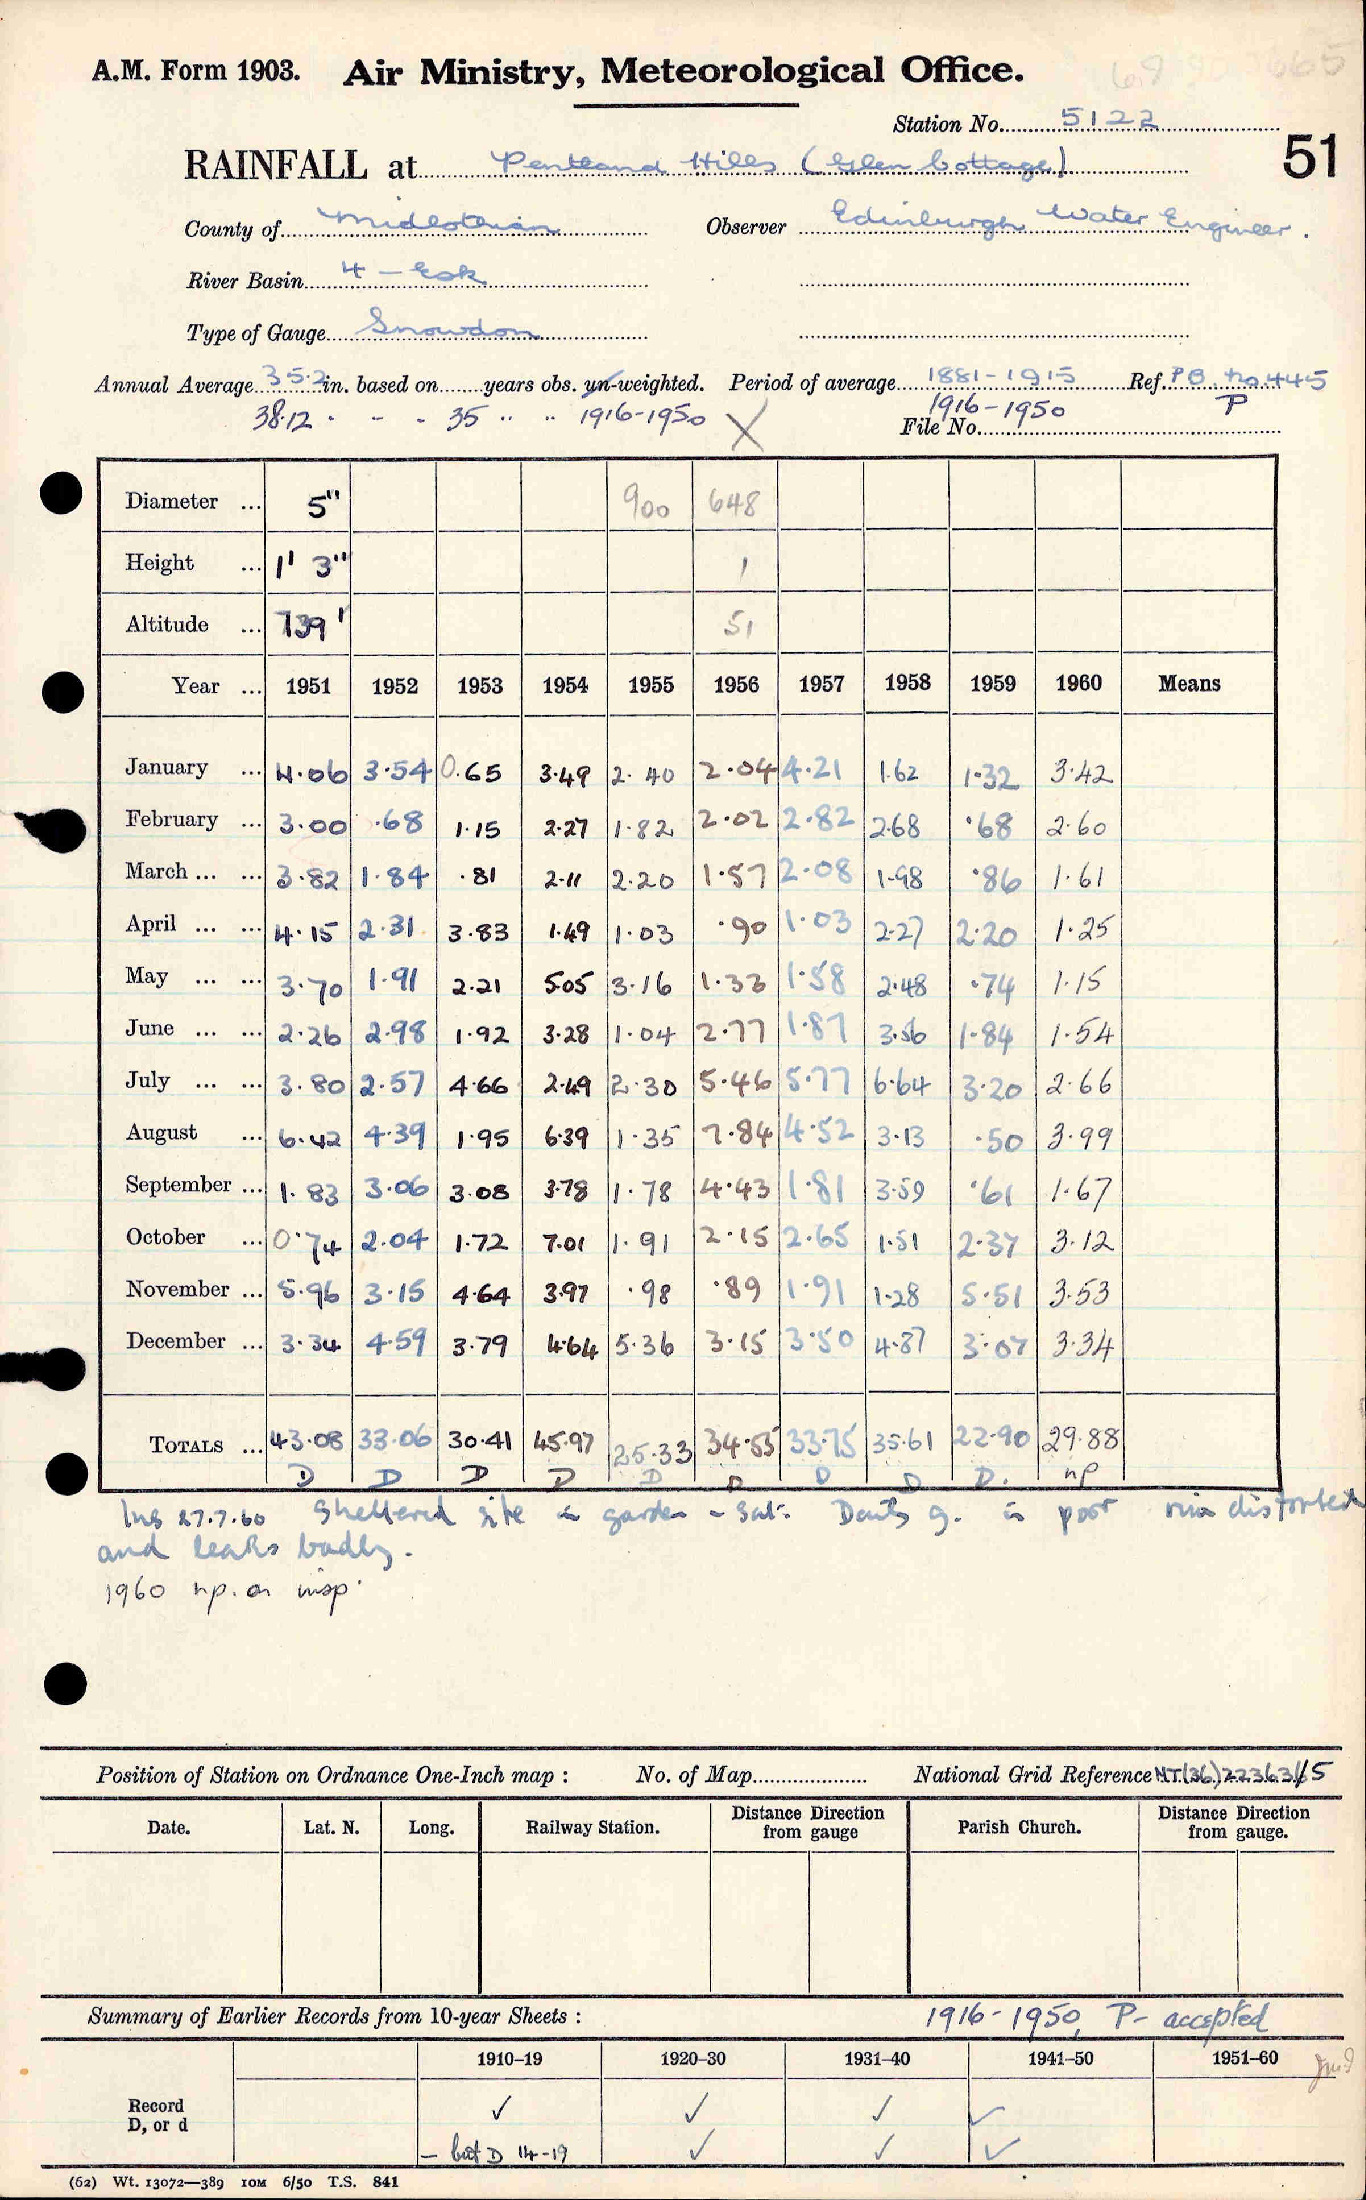 A.M. Form 1903. Air Ministry, Meteorological Office.
Station No. 5122
51
RAINFALL at Pentland Hills (Glen Cottage)
County of Midlothian Observer Edinburgh Water Engineer.
River Basin 4 - Esk
Type of Gauge Snowdon
Annual Average 35.2 in. based on years obs. un-weighted. Period of average 1881-1915 Ref. P.B. No 445
38.12 . - - . 35 " " 1916-1950 X 1916-1950 P
File No.
Diameter ... 5" 900 648
Height ... 1' 3" 1
Altitude ... 739' 51
Year ... 1951 1952 1953 1954 1955 1956 1957 1958 1959 1960 Means
January ... 4.06 3.54 0.65 3.49 2.40 2.04 4.21 1.62 1.32 3.42
February ... 3.00 .68 1.15 2.27 1.82 2.02 2.82 2.68 .68 2.60
March ... ... 3.82 1.84 .81 2.11 2.20 1.57 2.08 1.98 .86 1.61
April ... ... 4.15 2.31 3.83 1.49 1.03 .90 1.03 2.27 2.20 1.25
May ... ... 3.70 1.91 2.21 5.05 3.16 1.33 1.58 2.48 .74 1.15
June ... ... 2.26 2.98 1.92 3.28 1.04 2.77 1.87 3.56 1.84 1.54
July ... ... 3.80 2.57 4.66 2.49 2.30 5.46 5.77 6.64 3.20 2.66
August ... 6.42 4.39 1.95 6.39 1.35 7.84 4.52 3.13 .50 3.99
September ... 1.83 3.06 3.08 3.78 1.78 4.43 1.81 3.59 .61 1.67
October ... 0.74 2.04 1.72 7.01 1.91 2.15 2.65 1.51 2.37 3.12
November ... 5.96 3.15 4.64 3.97 .98 .89 1.91 1.28 5.51 3.53
December ... 3.34 4.59 3.79 4.64 5.36 3.15 3.50 4.87 3.07 3.34
TOTALS ... 43.08 33.06 30.41 45.97 25.33 34.55 33.75 35.61 22.90 29.88
D D D D D D D D D. np
Ins 27.7.60 Sheltered site in garden - Sat. g. is poor rim distorted
and leaks badly.
1960 np. on insp.
Position of Station on Ordnance One-Inch map : No. of Map National Grid Reference NT(36)
Date. Lat. N. Long. Railway Station. Distance Direction from gauge Parish Church. Distance Direction from gauge.
Summary of Earlier Records from 10-year Sheets : 1916-1950, P- accepted
1910-19 1920-30 1931-40 1941-50 1951-60
Record ✓ ✓ ✓ ✓
D, or d
- but D 14-19 ✓ ✓ ✓
(62) Wt. 13072—389 10M 6/50 T.S. 841